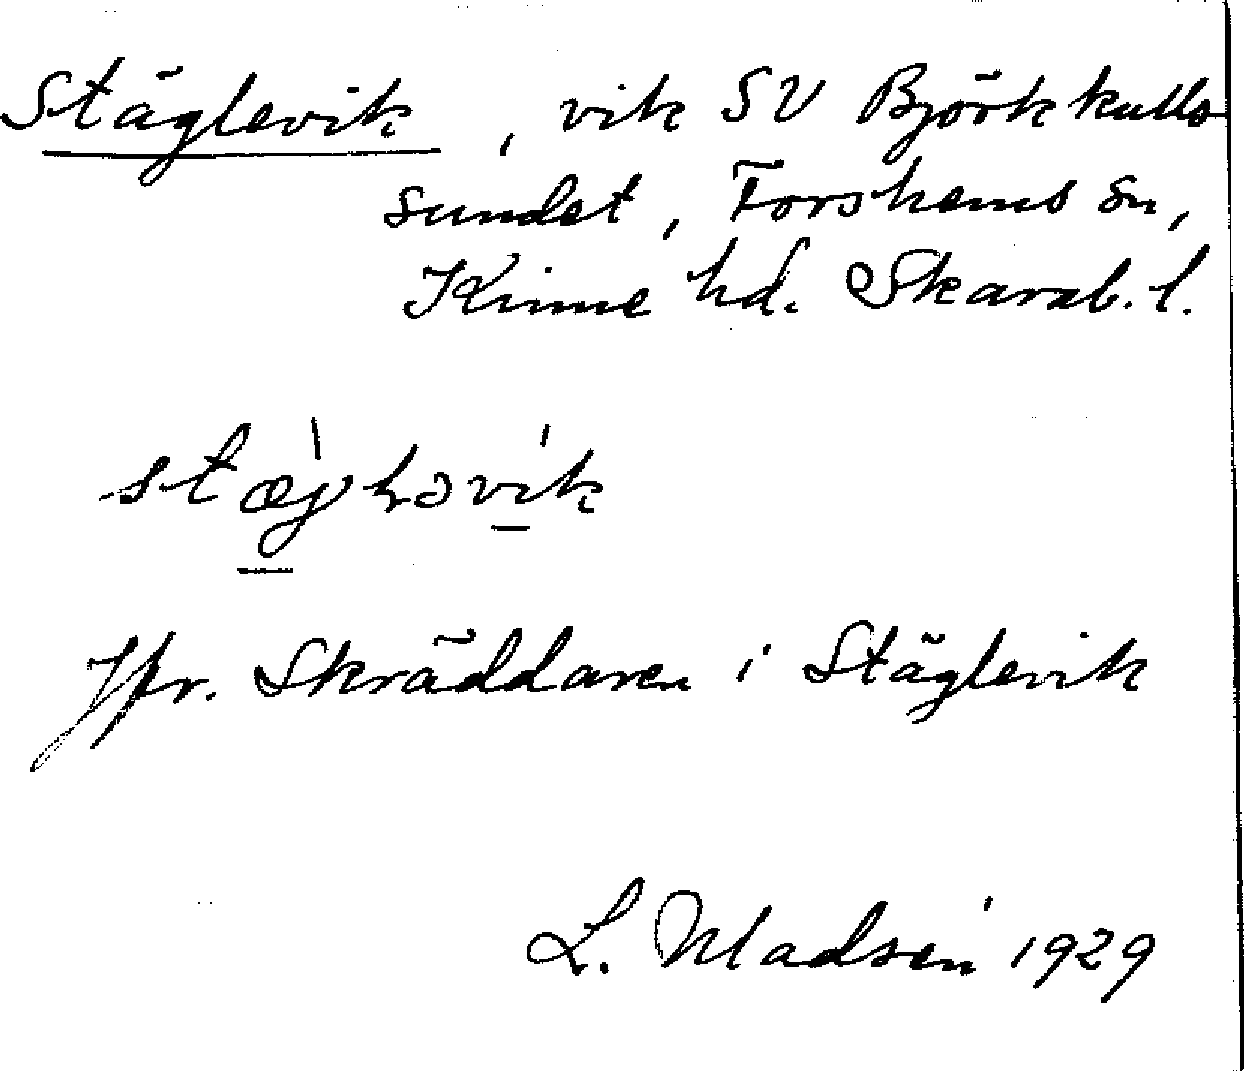 Stäglevik, vik SV Björkkulls
sundet, Forshems sn,
Kinne hd. Skarab. l.
Jfr. Skräddaren i Stäglevik
L. Madsén 1929